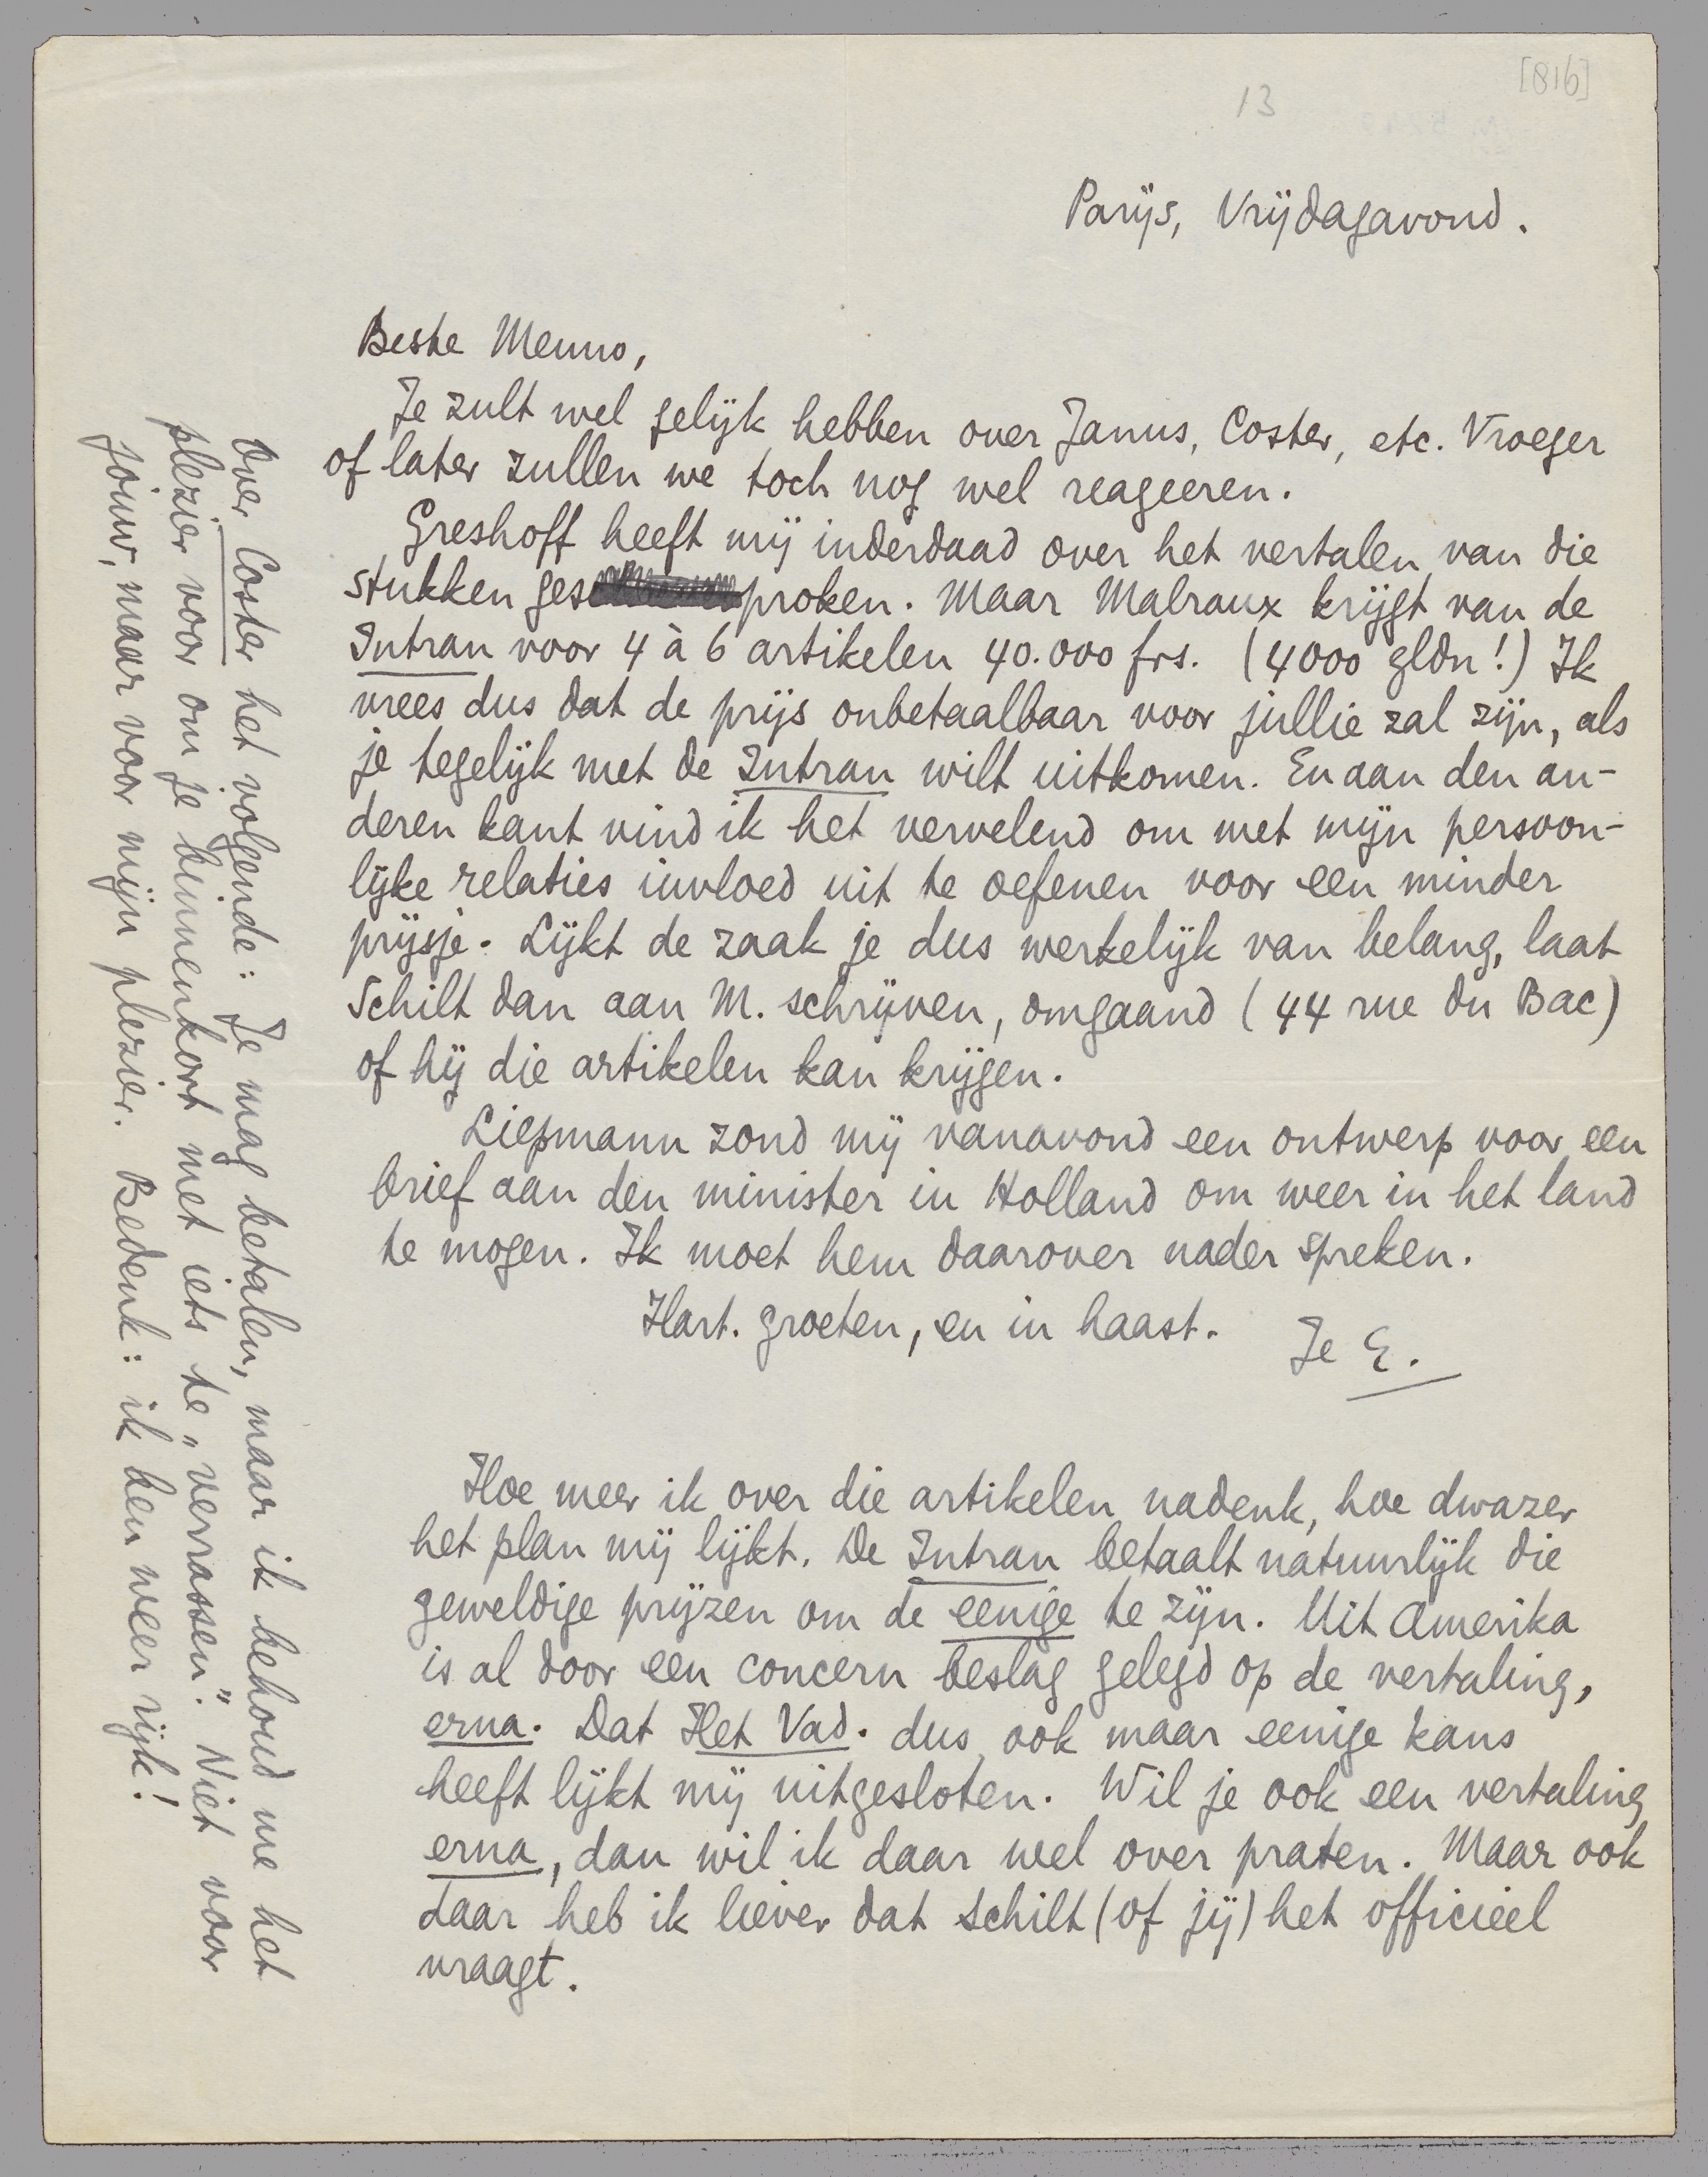 [816]
13
Parijs, Vrijdagavond.
Beste Menno,
Je zult wel gelijk hebben over Janus, Coster, etc. Vroeger
of later zullen we toch nog wel reageeren.
Greshoff heeft mij inderdaad over het vertalen van die
stukken gesproken. Maar Malraux krijgt van de
Intran voor 4 à 6 artikelen 40.000 frs. (4000 gldn!) Ik
vrees dus dat de prijs onbetaalbaar voor jullie zal zijn, als
je tegelijk met de Intran wilt uitkomen. En aan den an-
deren kant vind ik het vervelend om met mijn persoon-
lijke relaties invloed uit te oefenen voor een minder
prijsje. Lijkt de zaak je dus werkelijk van belang, laat
Schilt dan aan M. schrijven, omgaand (44 rue du Bac)
of hij die artikelen kan krijgen.
Liepmann zond mij vanavond een ontwerp voor een
brief aan den minister in Holland om weer in het land
te mogen. Ik moet hem daarover nader spreken.
Hart. groeten, en in haast.
Je E.
Hoe meer ik over die artikelen nadenk, hoe dwazer
het plan mij lijkt. De Intran betaalt natuurlijk die
geweldige prijzen om de eenige te zijn. Uit Amerika
is al door een concern beslag gelegd op de vertaling,
erna. Dat Het Vad. dus ook maar eenige kans
heeft lijkt mij uitgesloten. Wil je ook een vertaling
erna, dan wil ik daar wel over praten. Maar ook
daar heb ik liever dat Schilt (of jij) het officieel
vraagt.
Over Coster het volgende: Je mag betalen, maar ik behoud me het
plezier voor om je binnenkort met iets te „verrassen". Niet voor
jouw, maar voor mijn plezier. Bedenk: ik ben weer rijk!